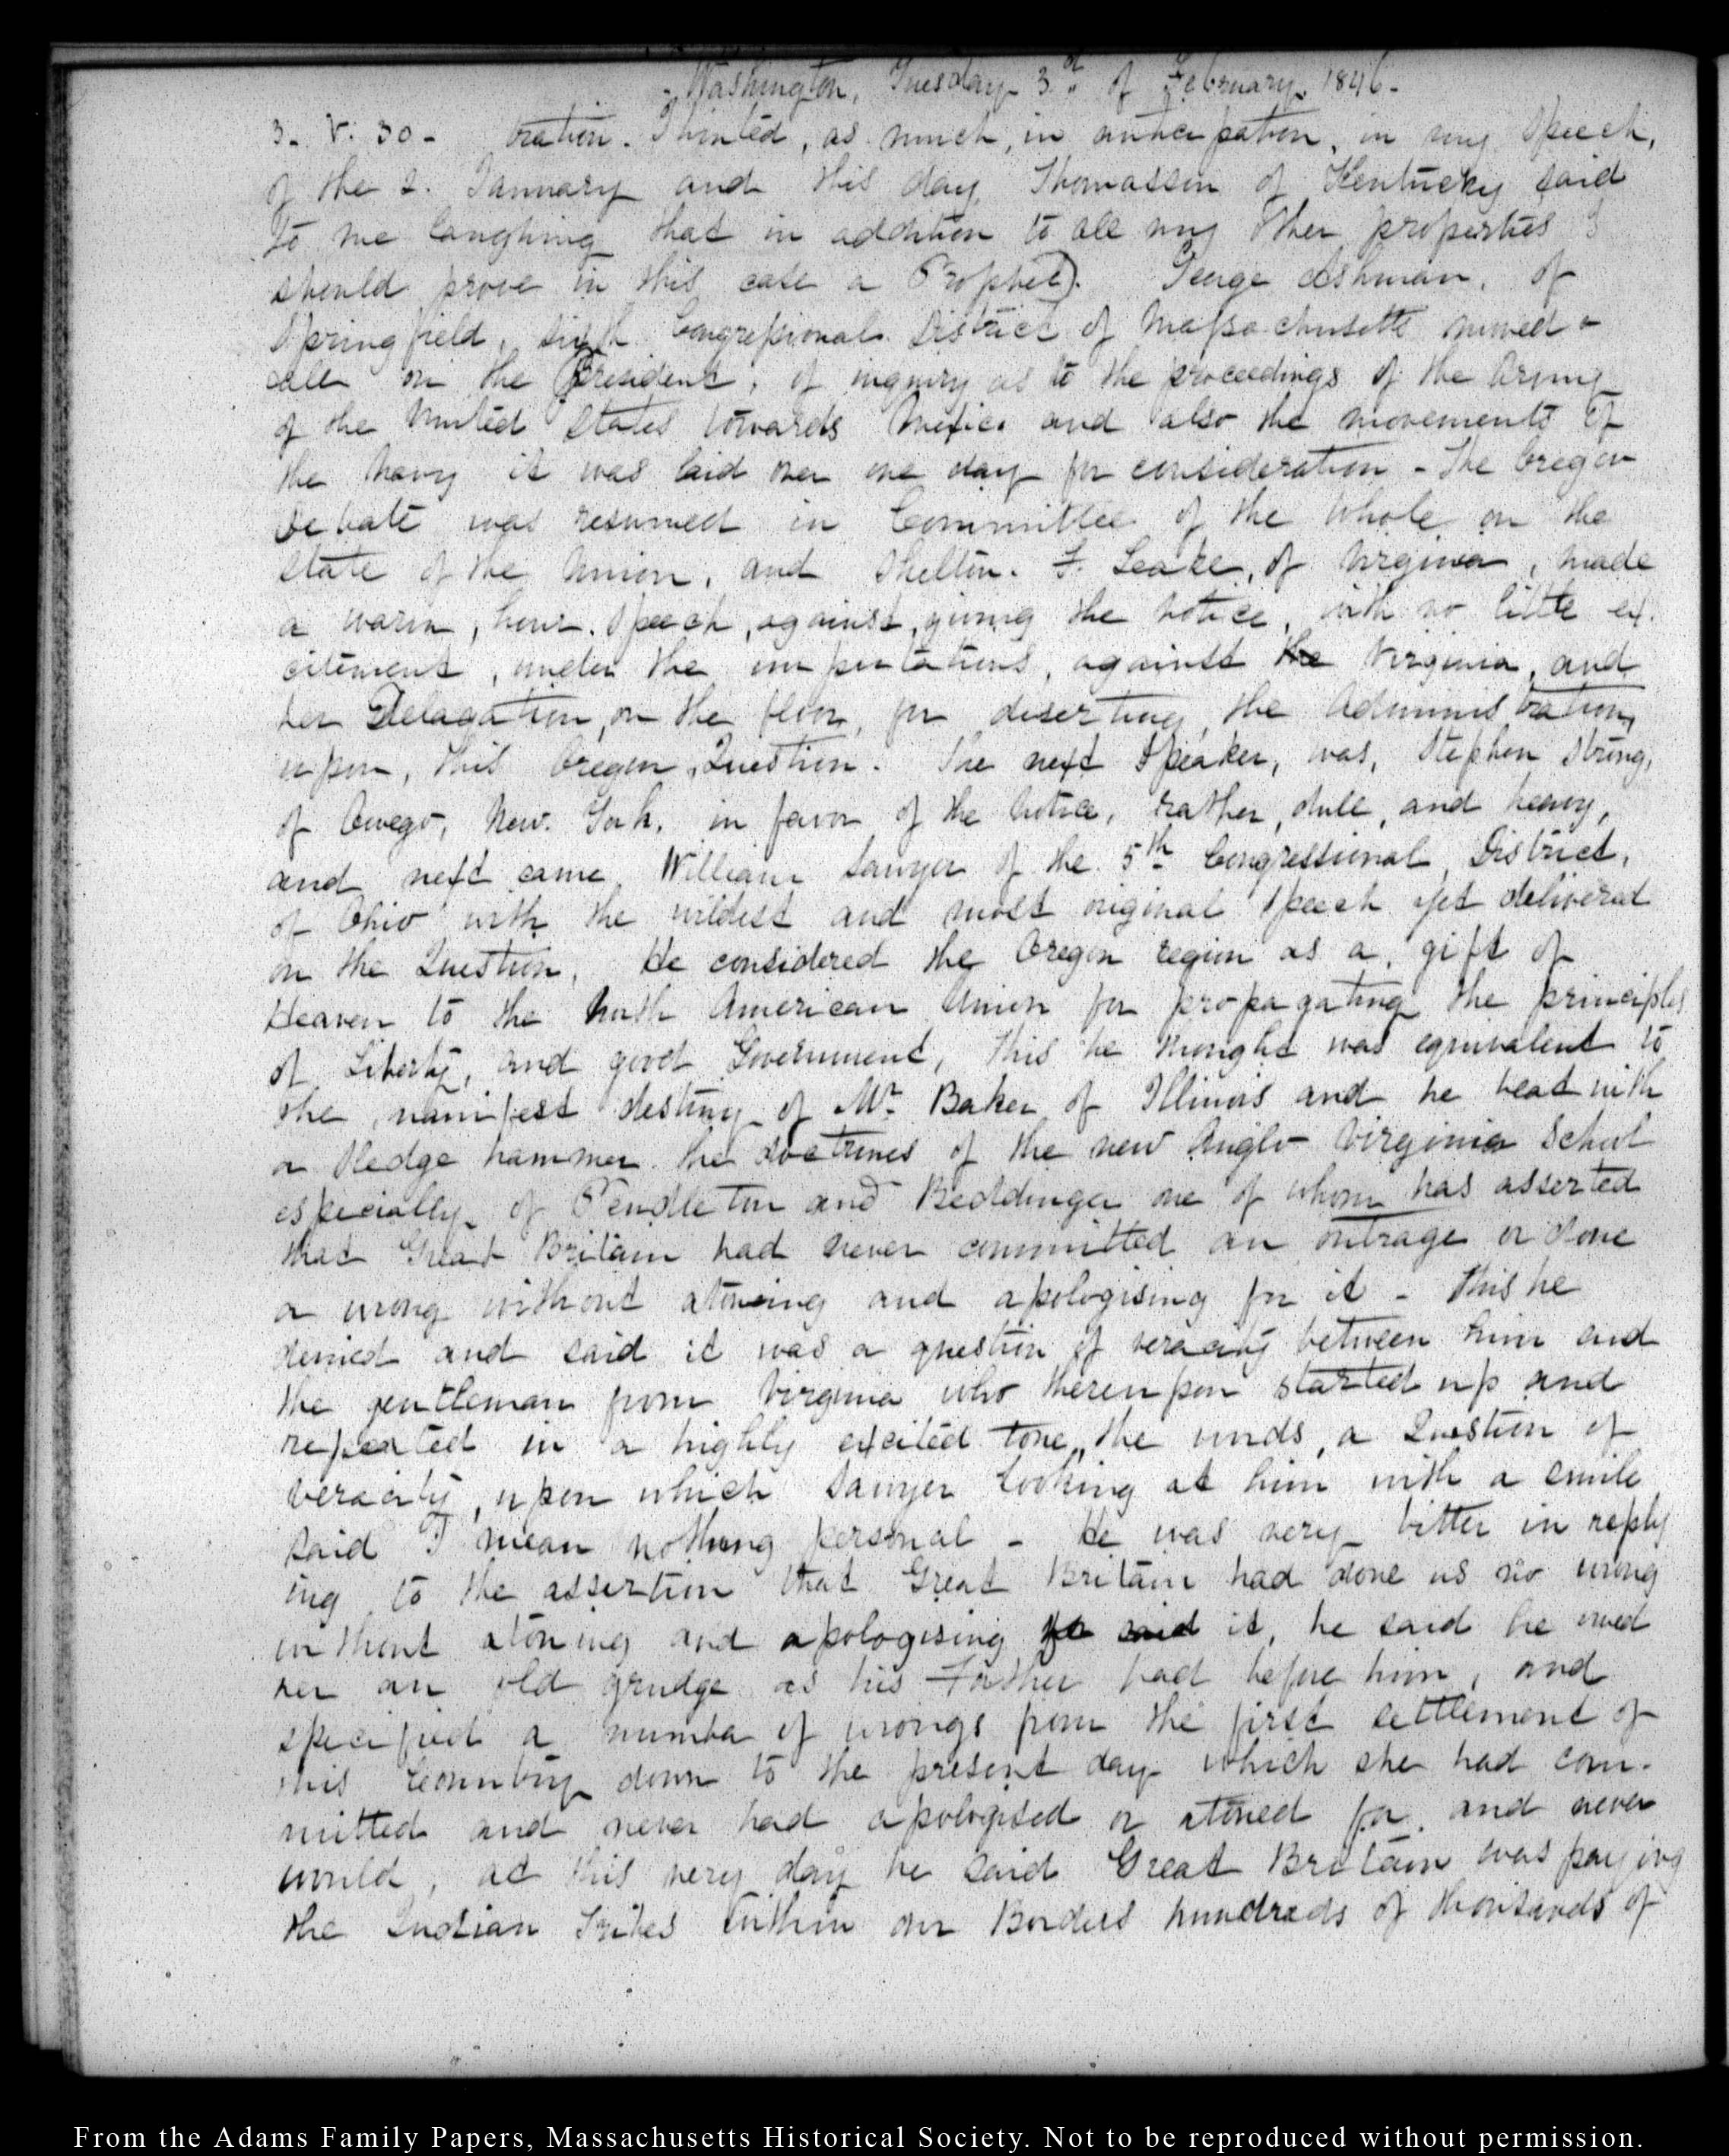 Washington, Tuesday 3.d of February. 1846.
3. V. 30 - oration. I hinted, as much, in anticipation, in my Speech,
of the 2. January and this day, Thomasson of Kentucky said
to me laughing that in addition to all my other properties I
should prove in this case a Prophet). George Ashmun, of
Springfield, sixth Congressional District of Massachusetts moved a
call on the President, of inquiry as to the proceedings of the Army
of the United States towards Mexico and also the movements of
the Navy it was laid over one day for consideration - The Oregon
debate was resumed in Committee of the Whole on the
State of the Union, and Shelton. F. Leake, of Virginia, made
a warm, hour. Speech, against, giving the notice, with no little ex-
citement, under the imputations, against the Virginia, and
her Delagation, on the floor, for deserting the Administration,
upon, this Oregon, Question. The next Speaker, was, Stephen Strong,
of Owego, New. York, in favor of the notice, rather, dull, and heavy,
and next came William Sawyer of the 5th Congressional District,
of Ohio with the wildest and most original Speech yet delivered
on the Question, He considered the Oregon region as a, gift of
Heaven to the North American Union for propagating the principles
of Liberty, and good Government, this he thought was equivalent to
the, manifest destiny of Mr. Baker of Illinois and he beat with
a Sledge hammer the doctrines of the new Anglo Virginia School
especially of Pendleton and Beddinger one of whom has asserted
that Great Britain had never committed an outrage or done
a wrong without atoneing and apologising for it - This he
denied and said it was a question of veracity between him and
the gentleman from Virginia who thereupon started up and
repeated in a highly excited tone, the words, a Question of
veracity, upon which Sawyer looking at him with a smile
said I mean nothing personal - He was very bitter in reply
ing to the assertion that Great Britain had done us no wrong
without atoning and apologising for said it, he said he owed
her an old grudge as his Father had before him, and
specified a number of wrongs from the first settlement of
this Country down to the present day which she had com-
mitted and never had apologised or atoned for, and never
would, at this very day he said Great Britain was paying
the Indian Tribes within our Borders hundreds of thousands of
From the Adams Family Papers, Massachusetts Historical Society. Not to be reproduced without permission.